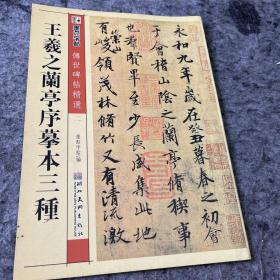 墨点字帖
傳世碑帖精選
王羲之蘭亭序摹本三種
墨點字帖 編
湖北美術出版社
永和九年歲在癸丑暮春之初會
于會稽山陰之蘭亭脩稧事
也羣賢畢至少長咸集此地
有崇山
峻領茂林脩竹又有清流激